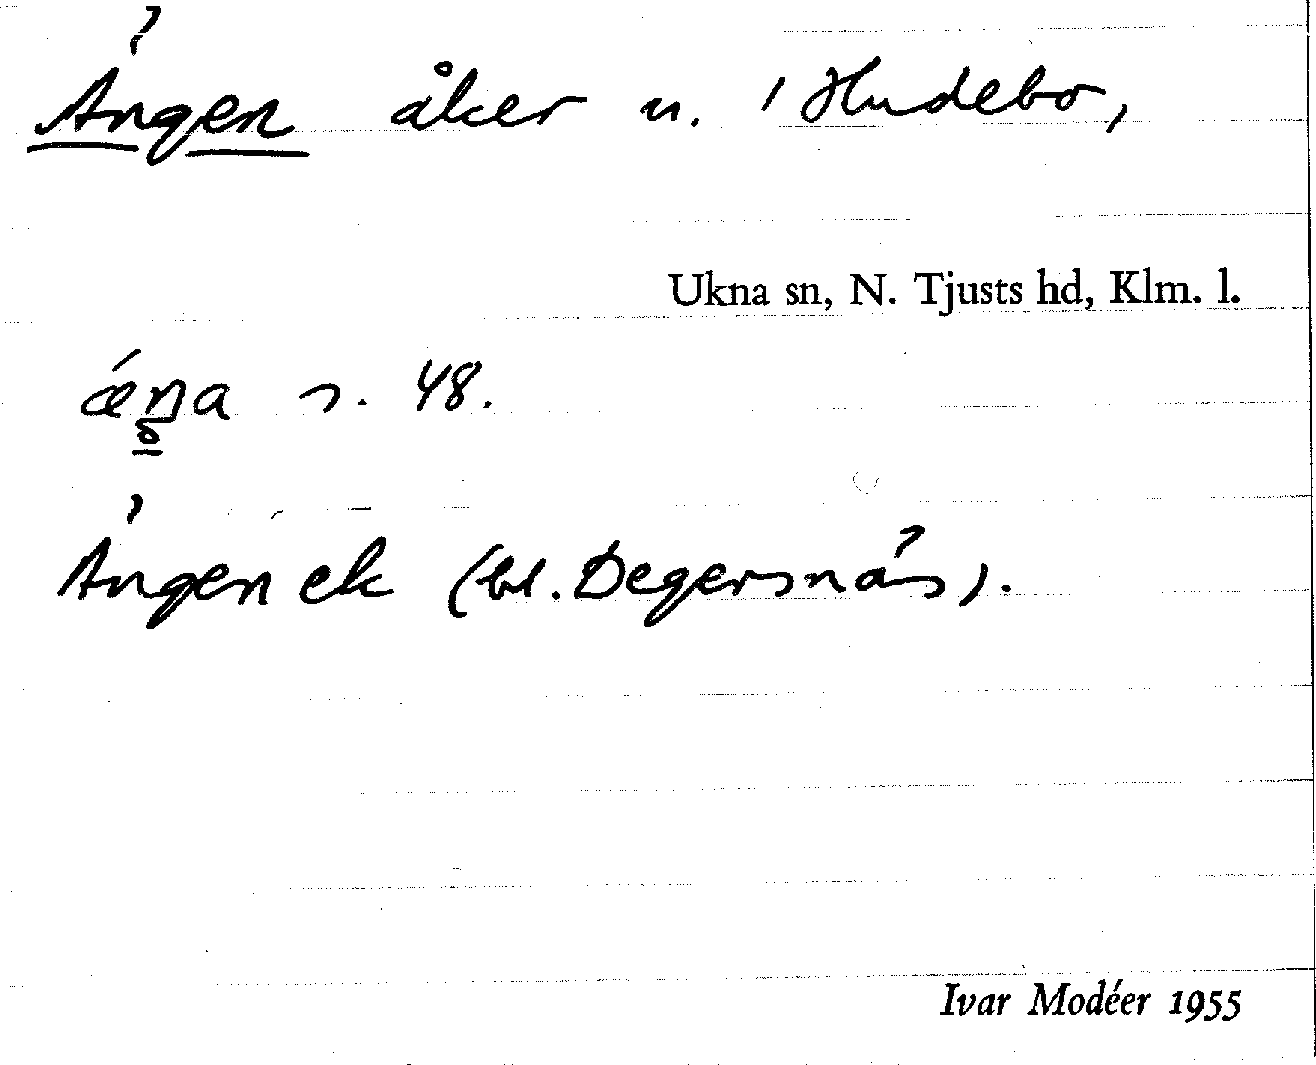 Ängen åker u. 1 Hudebo,
Ukna sn, N. Tjusts hd, Klm. l.
s. 48.
Ängen ek (bl. Degersnäs).
Ivar Modéer 1955